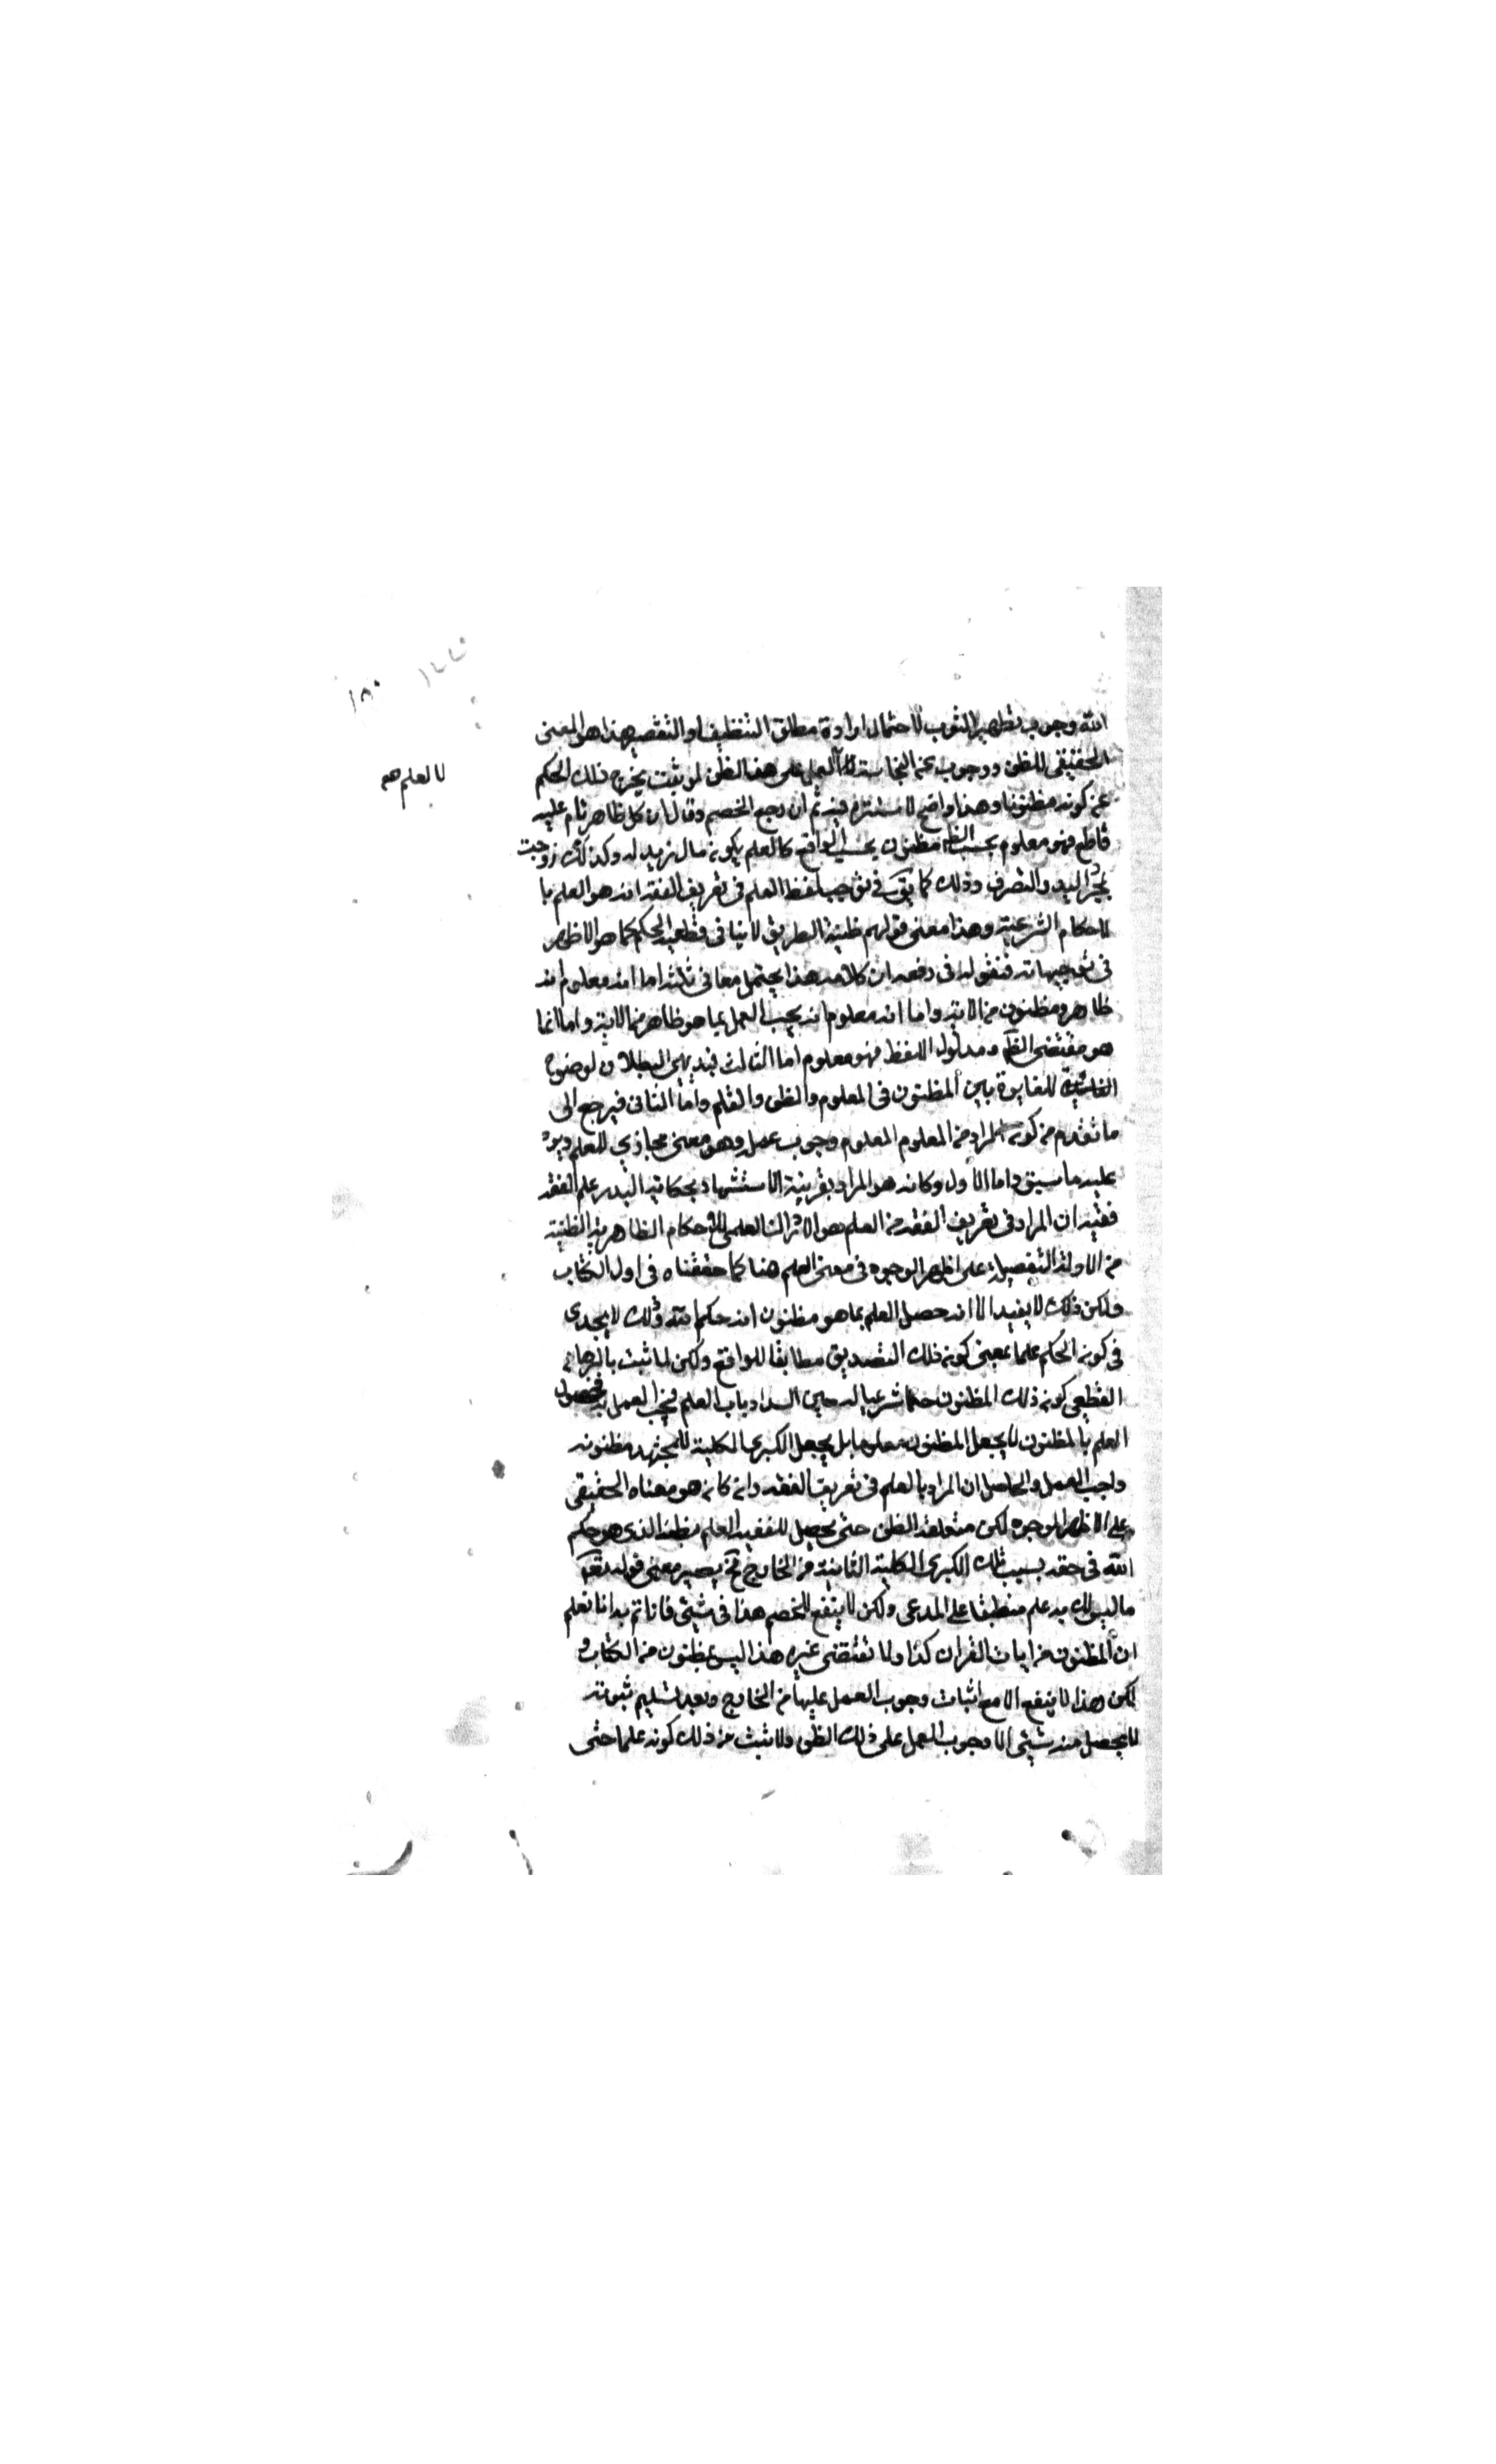 الله وجوب تطهير الثوب لاحتمال ارادة مطلق التنظيف او التقصير هذا هو المعنى
الحقيقى للظن ووجوب عن النجاسة العمل على هذا الظن لو يثبت يخرج ذلك الحكم
لا بالعلم صح
عن كونه مظنونا وهذا واضح لا سترة فيه ثم ان رجع الخصم وقال ان كل ظاهر قام عليه
قاطع فهو معلوم بحسب الظاهر مظنون بحسب الواقع كالعلم بكون مال زيد له وكذلك زوجيته
بمجرد اليد والتصرف وذلك كما يق فى توجيه لفظ العلم فى تعريف الفقه انه هو العلم با
لاحكام الشرعية وهذا معنى قولهم ظنية الطريق لا ينافى قطعية الحكم كما هو الاظهر
فى توجيهاته فنقول فى دفعه ان كلامه هذا يحتمل معانى ثلثة اما انه معلوم انه
ظاهر ومظنون من الاية واما انه معلوم انه يجب العمل بما هو ظاهر من الاية واما انما
هو مقتضى الظن ومدلول اللفظ فهو معلوم اما الثالث فبديهى البطلان لوضوح
المغايرة بين المظنون فى المعلوم والظن والعلم واما الثانى فيرجع الى
ما تقدم من كون المراد من المعلوم المعلوم وجوب عمله وهو معنى مجازي للعلم ويرد
عليه ما سبق واما الاول وكانه هو المراد بقرينة الاستشهاد بحكاية اليد وعلم الفقه
ففيه ان المراد فى تعريف الفقه من العلم هو الادراك العلمى للاحكام الظاهرية الظنية
من الادلة التفصيلية على اظهر الوجوه فى معنى العلم هنا كما حققناه فى اول الكتاب
ولكن ذلك لا يفيد الا انه حصل العلم بما هو مظنون انه حكم الله وذلك لا يجدى
فى كون الحكم علما بمعنى كون ذلك التصديق مطابقا للواقع ولكن لما ثبت بالبرهان
القطعى كون ذلك المظنون حكما شرعيا له حين انسداد باب العلم فيجب العمل به فحصول
العلم بالمظنون لا يجعل المظنون معلوما بل يجعل الكبرى الكلية للمجتهد مظنونه
واجب العمل والحاصل ان المراد بالعلم فى تعريف الفقه وان كان هو معناه الحقيقى
على الاظهر الوجوه لكن متعلقه الظن حتى يحصل للفقيه العلم بظنه الذى هو حكم
الله فى حقه بسبب تلك الكبرى الكلية الثابتة من الخارج فح يصير معنى قوله تع
ما ليس لك به علم منطبقا على المدعى ولكن لا ينفع للخصم هذا فى شيئ فانا نم به انا نعلم
ان المظنون من ايات القران كذا ولما تقتضى غيره هذا ليس بمظنون من الكتاب و
لكن هذا لا ينفع الا مع اثبات وجوب العمل عليها من الخارج وبعد تسليم ثبوته
لا يحصل منه شيئ الا وجوب العمل على ذلك الظن ولا ثبت من ذلك كونه علما حتى